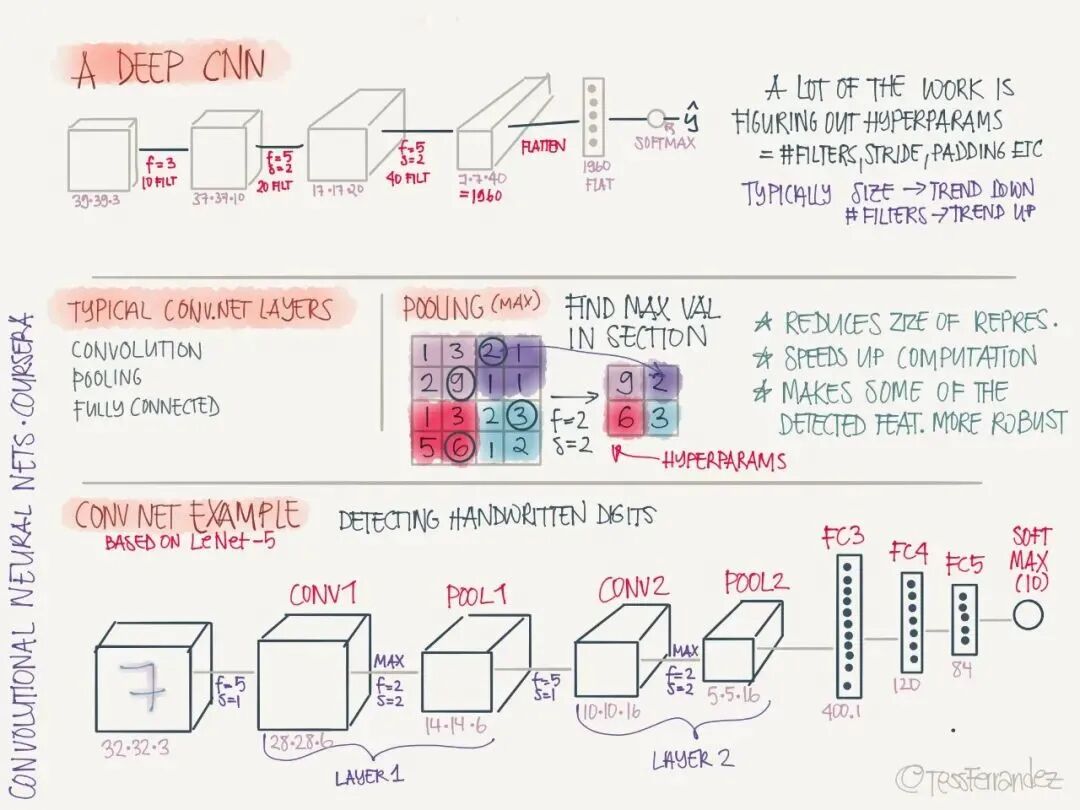 A DEEP CNN
39·39·3
f=3
10 FILT
37·37·10
f=5
s=2
20 FILT
17·17·20
f=5
s=2
40 FILT
7·7·40
=1960
FLATTEN
1960
FLAT
SOFTMAX
ŷ
A LOT OF THE WORK IS
FIGURING OUT HYPERPARAMS
= #FILTERS, STRIDE, PADDING ETC
TYPICALLY SIZE → TREND DOWN
#FILTERS → TREND UP
TYPICAL CONV.NET LAYERS
CONVOLUTION
POOLING
FULLY CONNECTED
POOLING (MAX)
FIND MAX VAL
IN SECTION
1 3 2 1
2 9 1 1
1 3 2 3
5 6 1 2
f=2
s=2
9 2
6 3
HYPERPARAMS
★ REDUCES ZIZE OF REPRES.
★ SPEEDS UP COMPUTATION
★ MAKES SOME OF THE
DETECTED FEAT. MORE ROBUST
CONV NET EXAMPLE
BASED ON LeNet-5
DETECTING HANDWRITTEN DIGITS
7
32·32·3
f=5
s=1
CONV1
28·28·6
MAX
f=2
s=2
POOL1
14·14·6
LAYER 1
f=5
s=1
CONV2
10·10·16
MAX
f=2
s=2
POOL2
5·5·16
LAYER 2
FC3
400.1
FC4
120
FC5
84
SOFT
MAX
(10)
CONVOLUTIONAL NEURAL NETS · COURSERA
©TessFerrandez